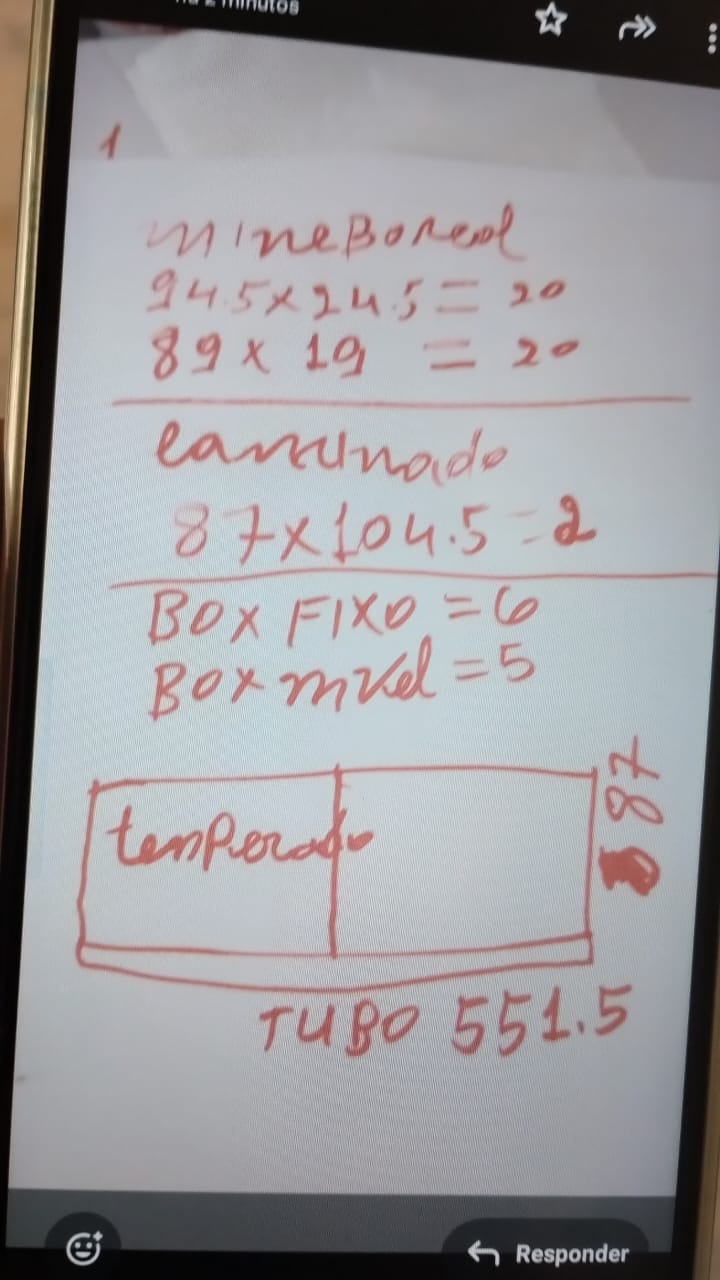 1
mineBoreal
94.5x24.5 = 20
89 x 19 = 20
Laminado
87x104.5 = 2
BOX FIXO = 6
BOX mvel = 5
temPerado
87
TUBO 551.5
Responder